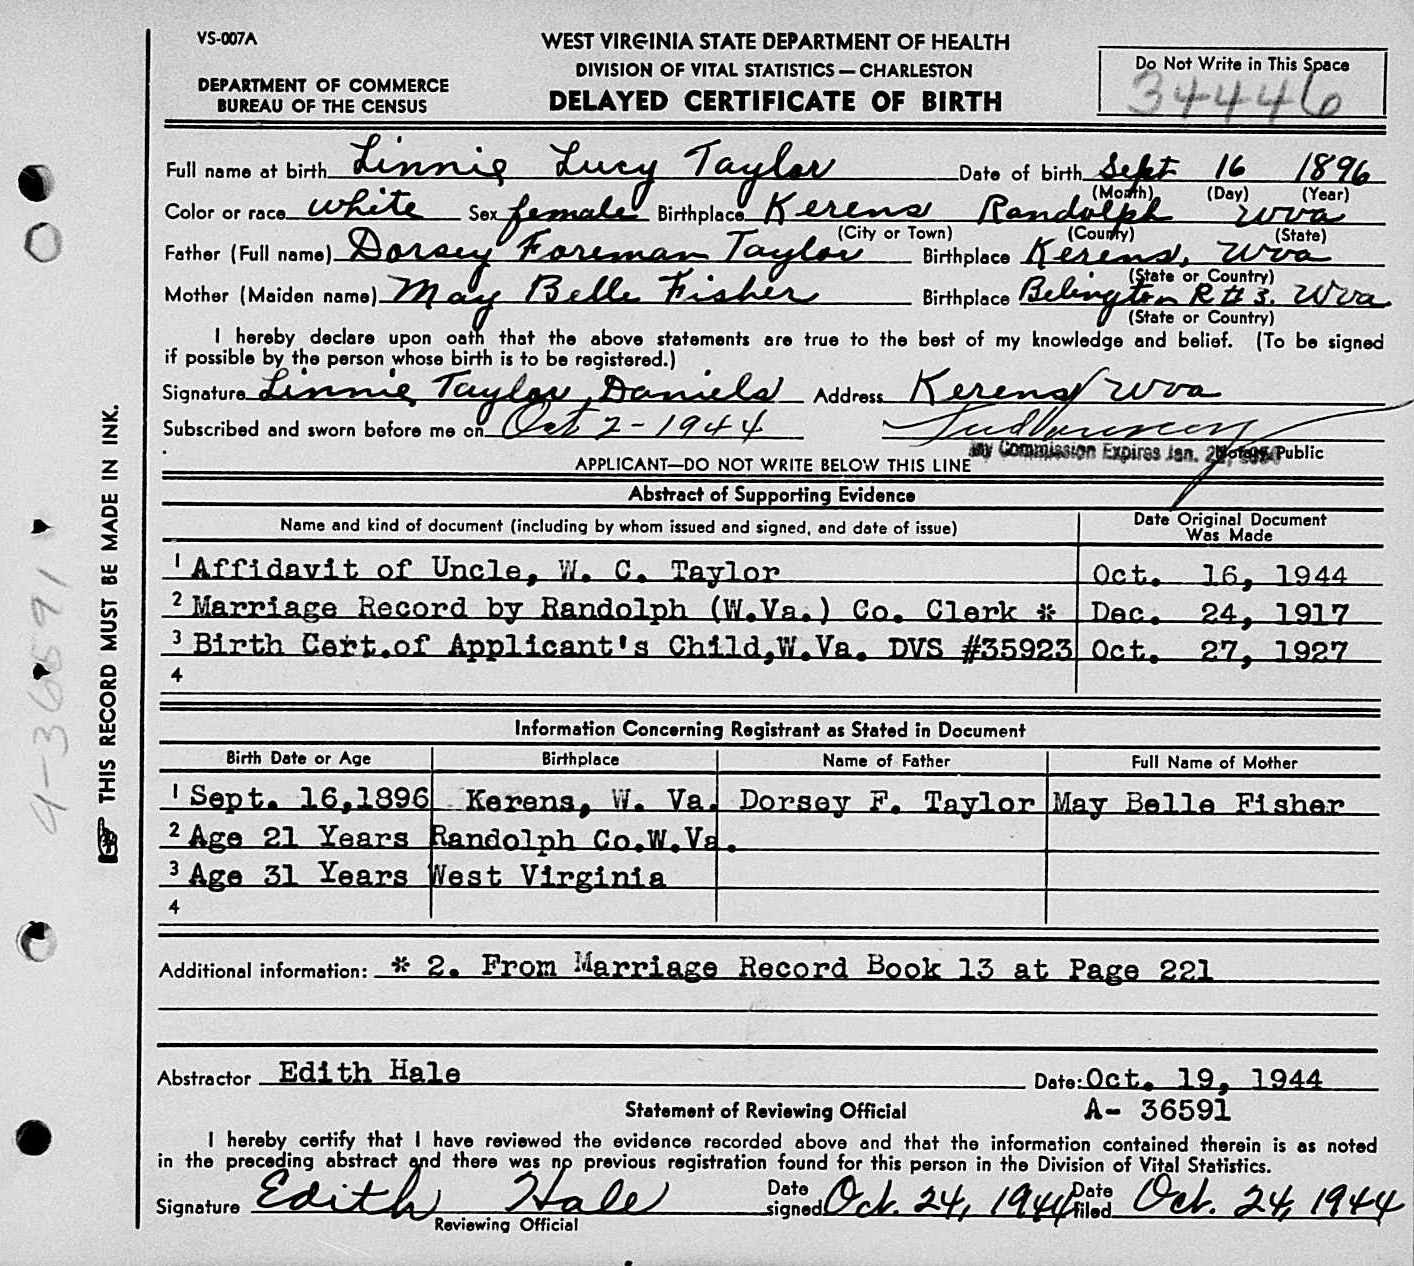 VS-007A
WEST VIRGINIA STATE DEPARTMENT OF HEALTH
DIVISION OF VITAL STATISTICS — CHARLESTON
DEPARTMENT OF COMMERCE
BUREAU OF THE CENSUS
DELAYED CERTIFICATE OF BIRTH
Do Not Write in This Space
34446
Full name at birth Linnie Lucy Taylor Date of birth Sept 16 1896
(Month) (Day) (Year)
Color or race white Sex female Birthplace Kerens Randolph Wva
(City or Town) (County) (State)
Father (Full name) Dorsey Foreman Taylor Birthplace Kerens, Wva
(State or Country)
Mother (Maiden name) May Belle Fisher Birthplace Belington R#3. Wva
(State or Country)
I hereby declare upon oath that the above statements are true to the best of my knowledge and belief. (To be signed
if possible by the person whose birth is to be registered.)
Signature Linnie Taylor Daniels Address Kerens Wva
Subscribed and sworn before me on Oct 2-1944
My Commission Expires Jan. Notary Public
APPLICANT—DO NOT WRITE BELOW THIS LINE
Abstract of Supporting Evidence
Name and kind of document (including by whom issued and signed, and date of issue)
Date Original Document
Was Made
1 Affidavit of Uncle, W. C. Taylor Oct. 16, 1944
2 Marriage Record by Randolph (W.Va.) Co. Clerk * Dec. 24, 1917
3 Birth Cert.of Applicant's Child,W.Va. DVS #35923 Oct. 27, 1927
4
Information Concerning Registrant as Stated in Document
Birth Date or Age Birthplace Name of Father Full Name of Mother
1 Sept. 16,1896 Kerens, W. Va. Dorsey F. Taylor May Belle Fisher
2 Age 21 Years Randolph Co.W.Va.
3 Age 31 Years West Virginia
4
Additional information: * 2. From Marriage Record Book 13 at Page 221
Abstractor Edith Hale Date: Oct. 19, 1944
Statement of Reviewing Official A- 36591
I hereby certify that I have reviewed the evidence recorded above and that the information contained therein is as noted
in the preceding abstract and there was no previous registration found for this person in the Division of Vital Statistics.
Signature Edith Hale Date signed Oct. 24, 1944 Date filed Oct. 24, 1944
Reviewing Official
THIS RECORD MUST BE MADE IN INK.
A-36591